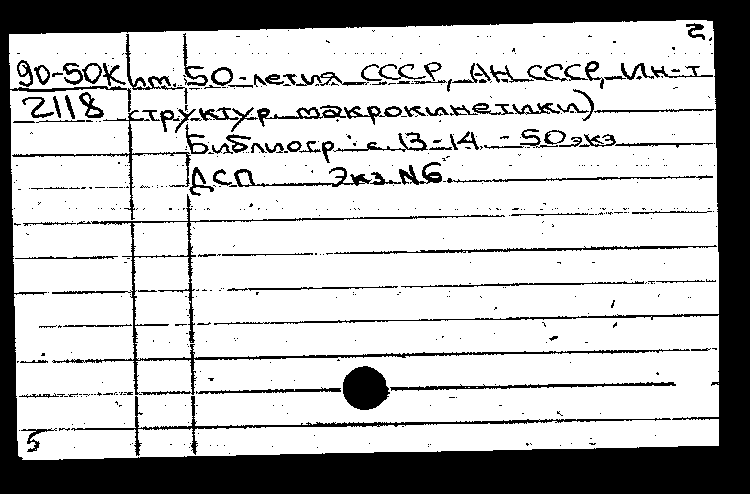 2.
90-50К им. 50-летия СССР, АН СССР, Ин-т
2118 структур. макрокинетики)
Библиогр.: с. 13-14 - 50 экз
ДСП Экз. N6.
5